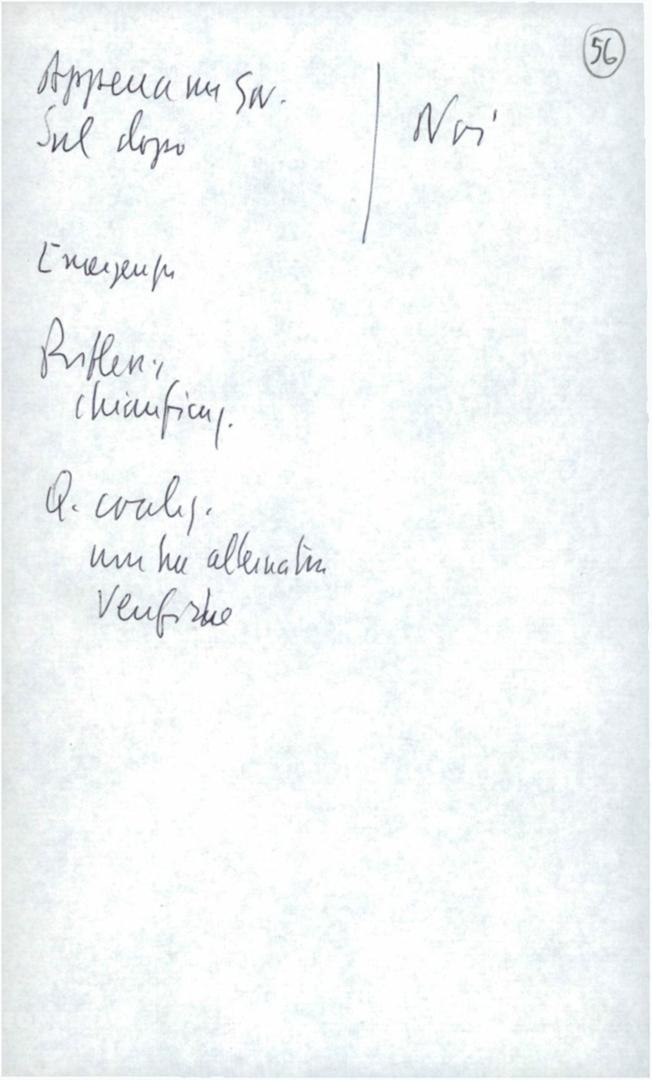 56
Appena un Gov.
Sul dopo
Noi
Emergenze
Problemi
chiarificaz.
Q. coaliz.
non ha alternative
Verifiche